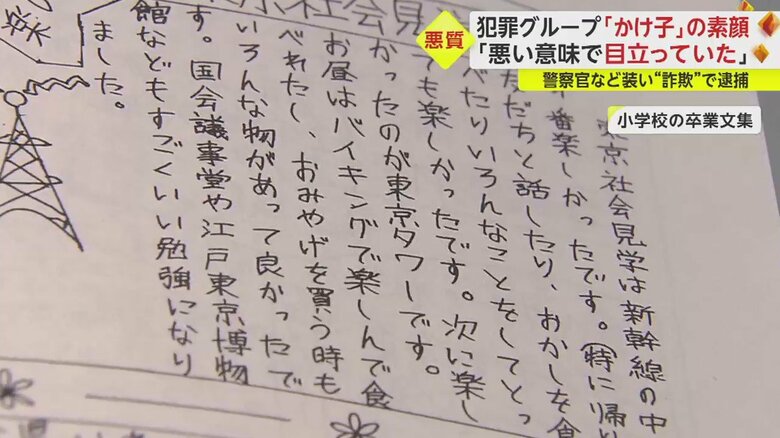 悪質
犯罪グループ「かけ子」の素顔
「悪い意味で目立っていた」
警察官など装い“詐欺”で逮捕
小学校の卒業文集
京社会見
京社会見学は新幹線の中
番楽しかったです。(特に帰り
だちと話したり、おかしを食
べたりいろんなことをしてとっ
ても楽しかったです。次に楽し
かったのが東京タワーです。
お昼はバイキングで楽しんで食
べれたし、おみやげを買う時も
いろんな物があって良かったで
す。国会議事堂や江戸東京博物
館などもすごくいい勉強になり
ました。